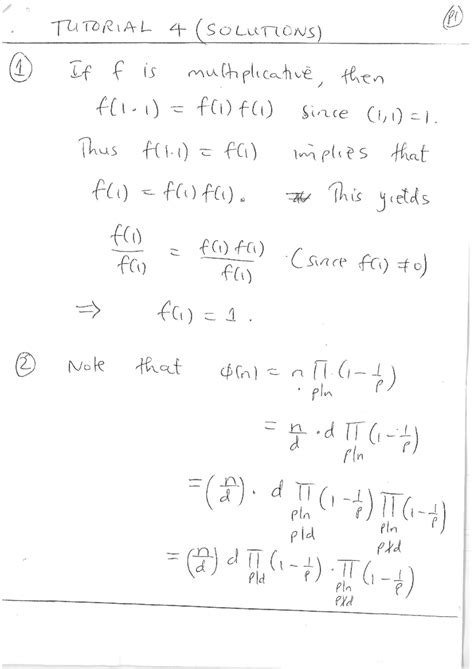 P1
TUTORIAL 4 (SOLUTIONS)
① If f is multiplicative, then
f(1·1) = f(1) f(1) since (1,1) = 1.
Thus f(1·1) = f(1) implies that
f(1) = f(1) f(1). This yields
f(1)/f(1) = f(1) f(1)/f(1) (since f(1) ≠ 0)
⇒ f(1) = 1.
② Note that φ(n) = n ∏_{p|n} (1 - 1/p)
= n/d · d ∏_{p|n} (1 - 1/p)
= (n/d) · d ∏_{p|n, p|d} (1 - 1/p) ∏_{p|n, p∤d} (1 - 1/p)
= (n/d) d ∏_{p|d} (1 - 1/p) · ∏_{p|n, p∤d} (1 - 1/p)